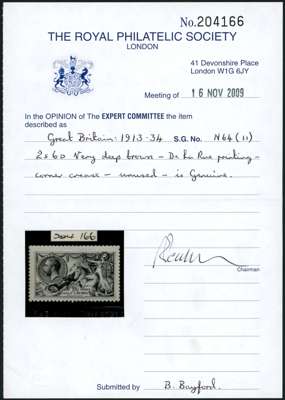 No.204166
THE ROYAL PHILATELIC SOCIETY
LONDON
41 Devonshire Place
London W1G 6JY
Meeting of 16 NOV 2009
In the OPINION of The EXPERT COMMITTEE the item
described as
Great Britain: 1913-34 S.G. No. N64 (11)
2s6d Very deep brown - De La Rue printing -
corner crease - unused - is Genuine.
166
Chairman
Submitted by B. Bayford.